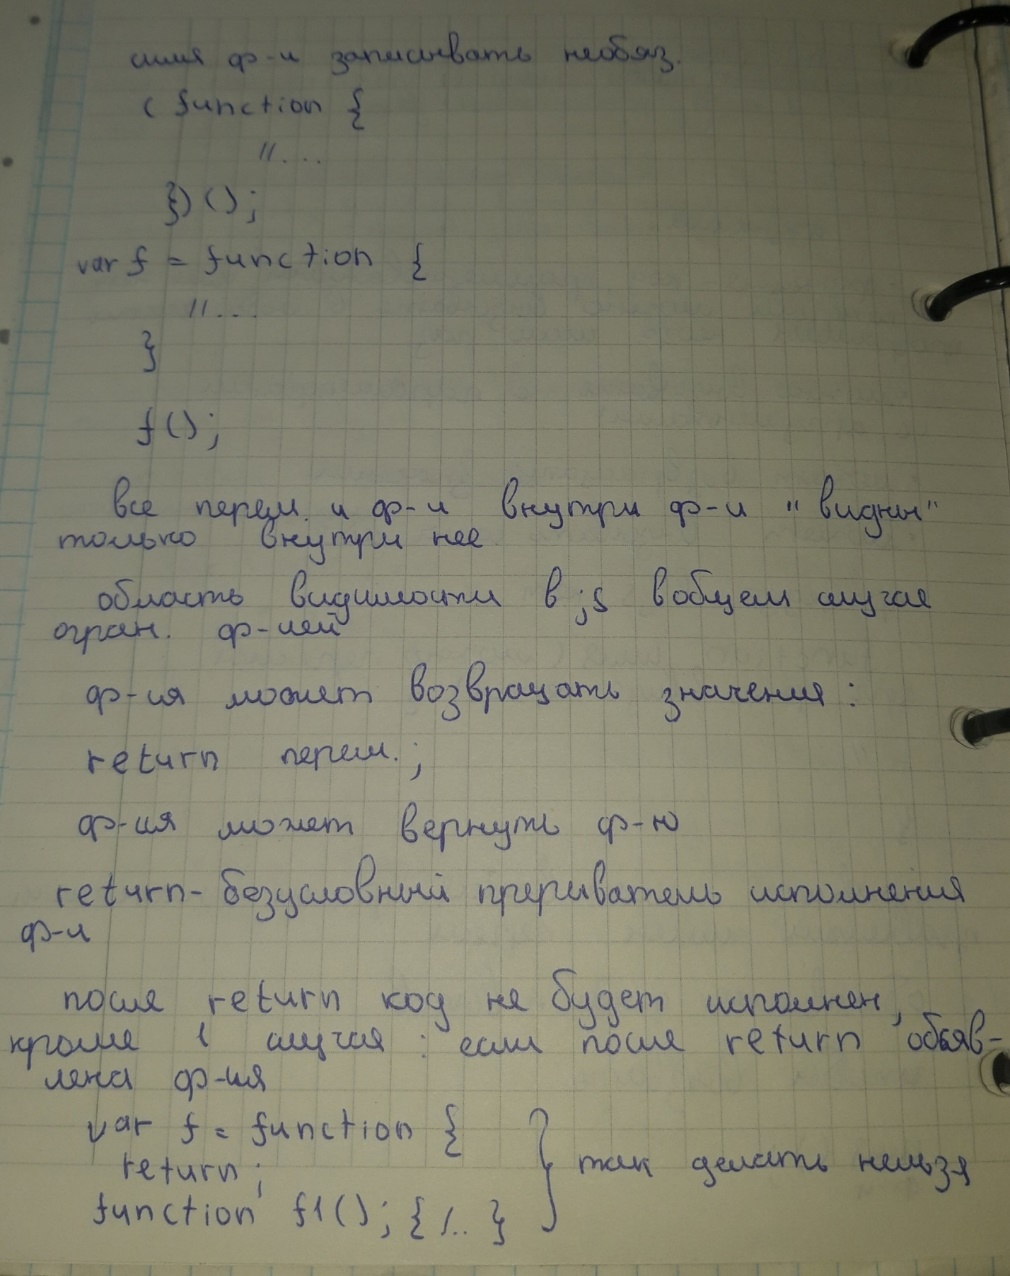 имя ф-и записывать необяз.
( function {
//...
})();
var f = function {
//...
}
f();
все перем. и ф-и внутри ф-и "видны"
только внутри нее
область видимости в js вобщем случае
огран. ф-ией
ф-ия может возвращать значения:
return перем.;
ф-ия может вернуть ф-ю
return - безусловный прерыватель исполнения
ф-и
после return код не будет исполнен,
кроме 1 случая: если после return объяв-
лена ф-ия
var f = function {
return;
function f1(); {/..}
так делать нельзя